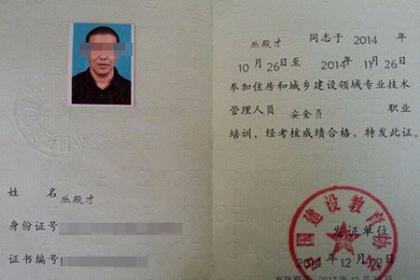 姓 名 丛殿才
身份证号
证书编号
丛殿才 同志于 2014 年
10 月 26 日至 2014 年 11 月 26 日
参加住房和城乡建设领域专业技术
管理人员 安全员 职业
培训，经考核成绩合格，特发此证。
国建设教育协
发证单位
2014 年 12 月 22 日